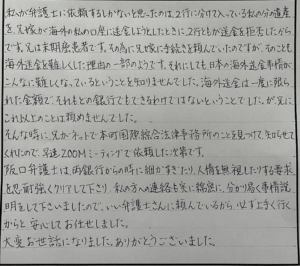 私が弁護士に依頼するしかないと思ったのは、2行に分けて入っている私の分の遺産
を、兄嫁が海外の私の口座に送金しようとしたときに、2行ともが送金を拒否したから
です。兄は末期癌患者です。その為に兄嫁に手続きを頼んでいたのですが、そのことも
海外送金を難しくした理由の一部のようです。それにしても日本の海外送金事情が
こんなに難しくなっているということを知りませんでした。海外送金は一定に限ら
れた金額で、それもどの銀行でもできるわけではないということでした。が、兄に
これ以上のことは頼めませんでした。
そんな時に、兄がネットで本町国際総合法律事務所のことを見つけて、知らせて
くれたので、早速ZOOMミーティングで依頼した次第です。
阪口弁護士は両銀行からの時に細かすぎたり、人情を無視したりする要求
を忍耐強くクリアして下さり、私の方への連絡も実に綿密に、分かり易く事情説
明をして下さいましたので、いい弁護士さんに頼んでいるから必ず上手く行く
からと安心してお任せしました。
大変お世話になりました。ありがとうございました。